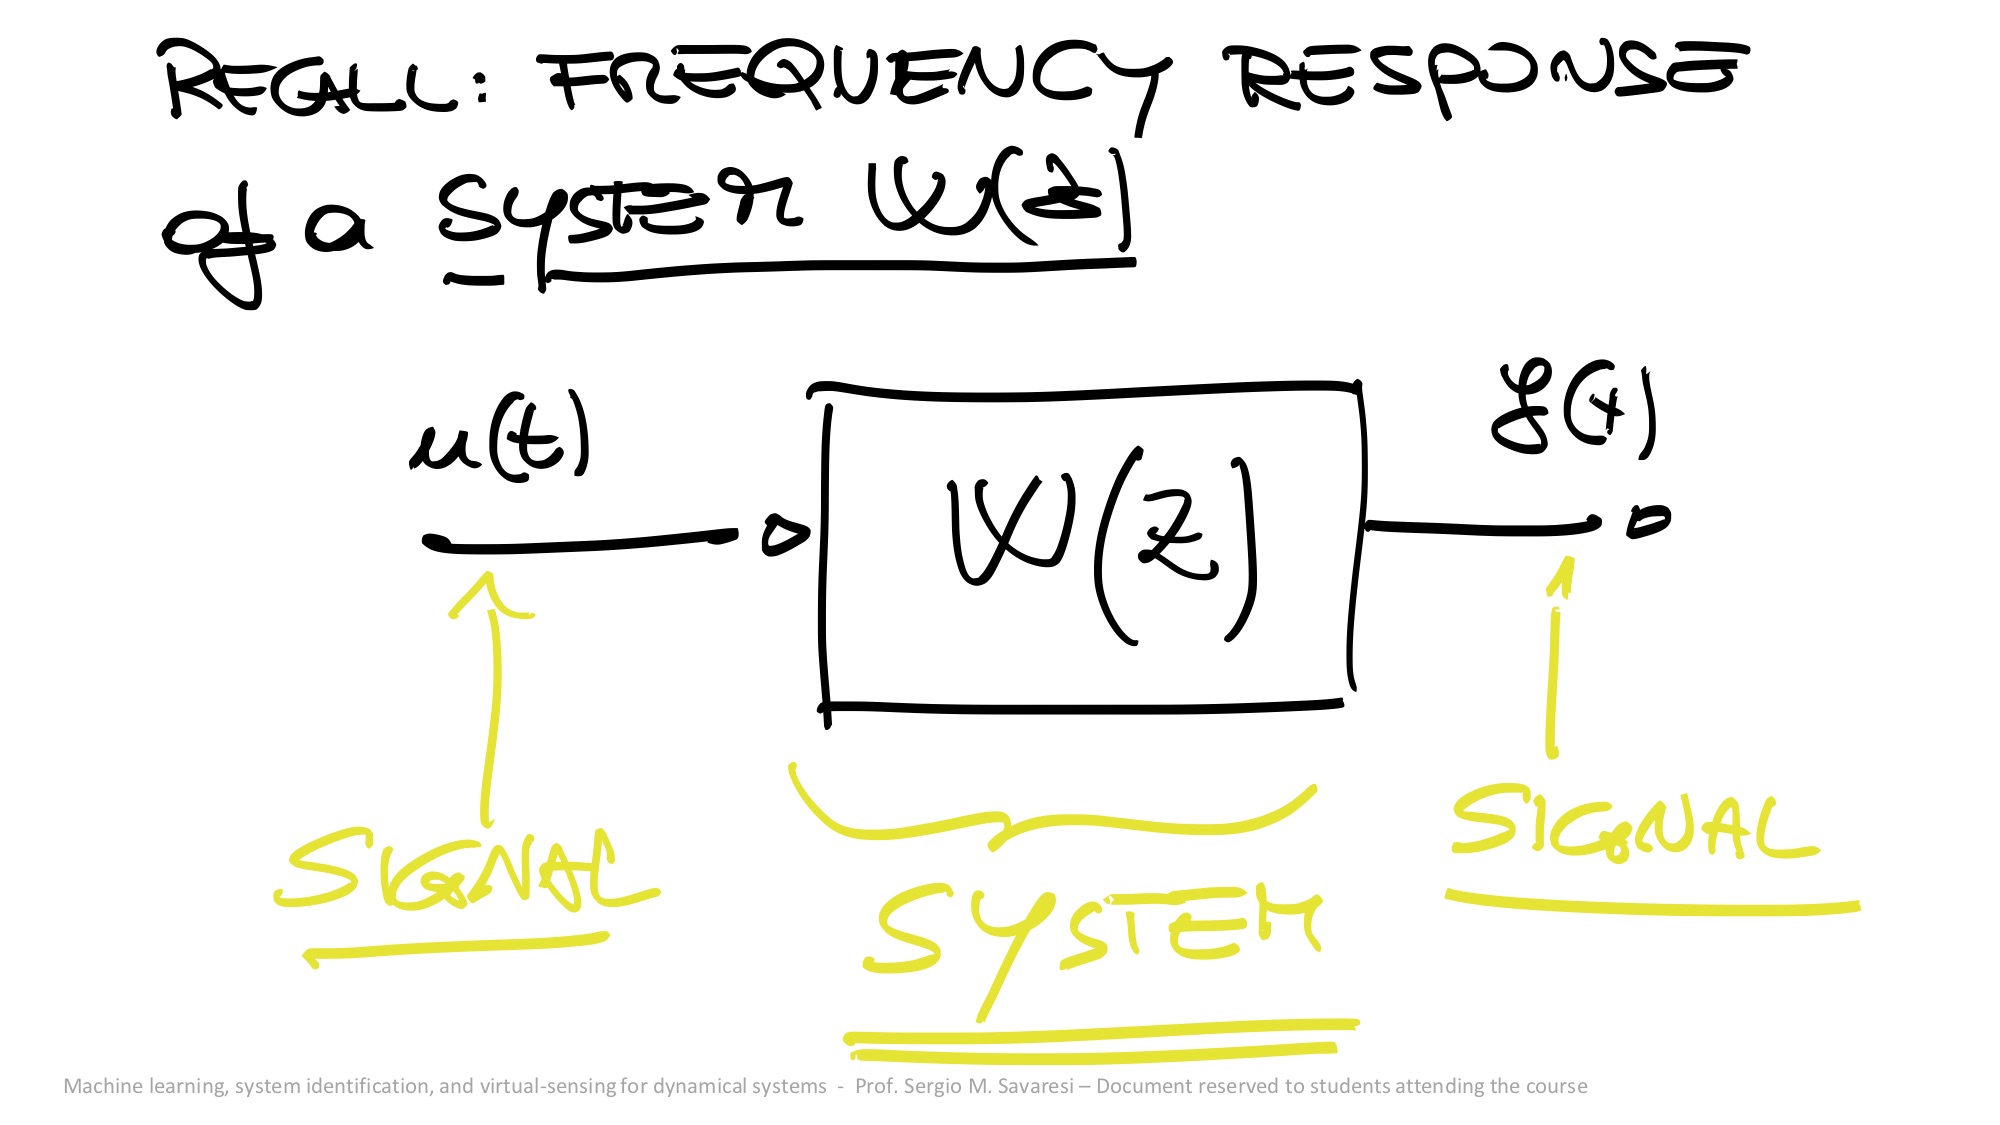 RECALL: FREQUENCY RESPONSE
of a SYSTEM W(z)
u(t)
y(t)
W(z)
SIGNAL
SYSTEM
SIGNAL
Machine learning, system identification, and virtual-sensing for dynamical systems - Prof. Sergio M. Savaresi – Document reserved to students attending the course